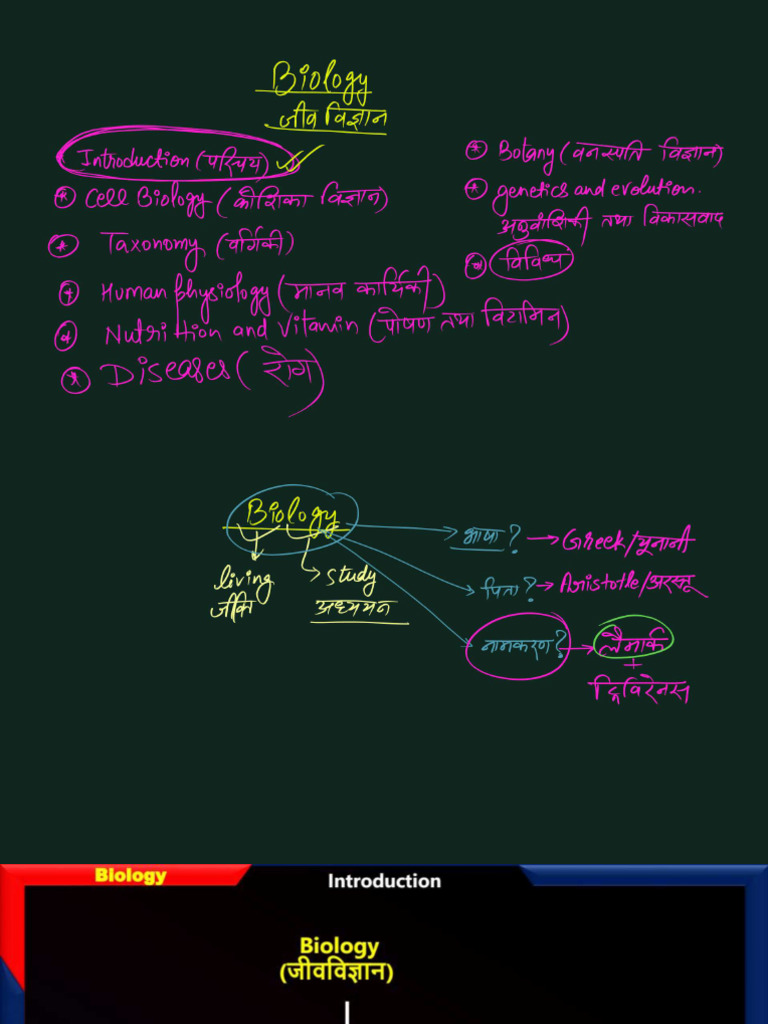 Biology
जीव विज्ञान
Introduction (परिचय)
Cell Biology (कौशिका विज्ञान)
Taxonomy (वर्गिकी)
Human physiology (मानव कार्यिकी)
Nutrition and Vitamin (पोषण तथा विटामिन)
Diseases (रोग)
Botany (वनस्पति विज्ञान)
genetics and evolution.
अनुवांशिकी तथा विकासवाद
विविध
Biology
living
study
अध्ययन
भाषा? → Greek/यूनानी
पिता? → Aristotle/अरस्तू
नामकरण? → लैमार्क
+
ट्रिविरेनस
Biology
Introduction
Biology
(जीवविज्ञान)